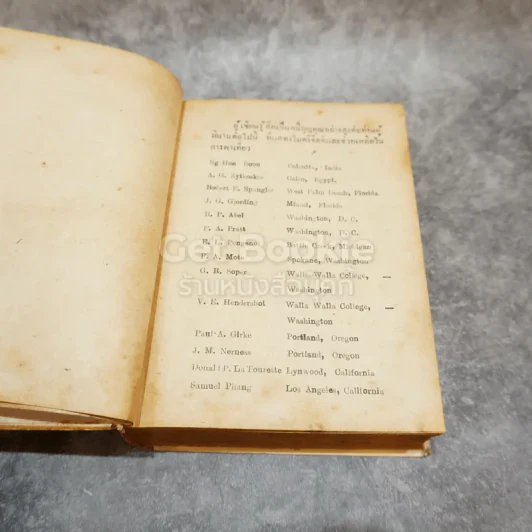 ผู้เขียนรู้
มีนามต่อไปนี้
การพาเที่ยว
Ng Hua Calcutta, India
A. G. Cairo, Egypt.
Robert E. Spangler West Palm Beach, Florida
J. O. Gjording Miami, Florida
R. P. Abel Washington, D. C.
F. A. Pratt Washington, D. C.
Battle Creek, Michigan
F. A. Mote Spokane, Washington
G. R. Soper Walla Walla College, —
Washington
V. E. Hendershot Walla Walla College, —
Washington
Paul A. Girke Portland, Oregon
J. M. Nerness Portland, Oregon
Donald P. La Tourette Lynwood, California
Samuel Phang Los Angeles, California
Get Bookie
ร้านหนังสือเก่า